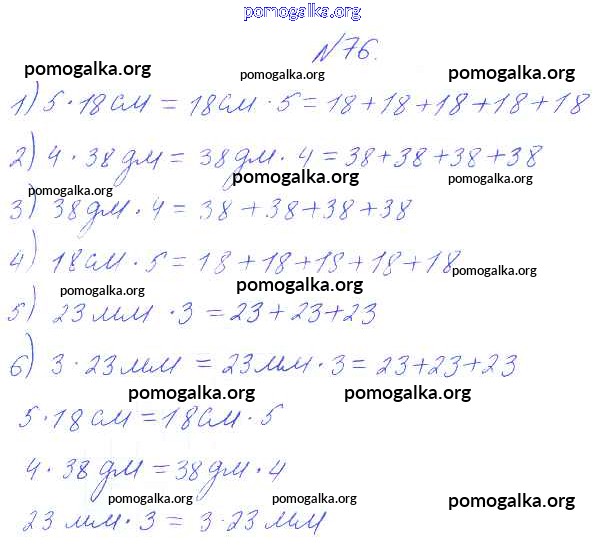 pomogalka.org
№76.
pomogalka.org pomogalka.org pomogalka.org
1) 5 · 18 см = 18 см · 5 = 18 + 18 + 18 + 18 + 18
2) 4 · 38 дм = 38 дм · 4 = 38 + 38 + 38 + 38
pomogalka.org pomogalka.org pomogalka.org
3) 38 дм · 4 = 38 + 38 + 38 + 38
4) 18 см · 5 = 18 + 18 + 18 + 18 + 18
pomogalka.org
pomogalka.org pomogalka.org
5) 23 мм · 3 = 23 + 23 + 23
6) 3 · 23 мм = 23 мм · 3 = 23 + 23 + 23
pomogalka.org pomogalka.org
5 · 18 см = 18 см · 5
4 · 38 дм = 38 дм · 4
pomogalka.org pomogalka.org pomogalka.org
23 мм · 3 = 3 · 23 мм